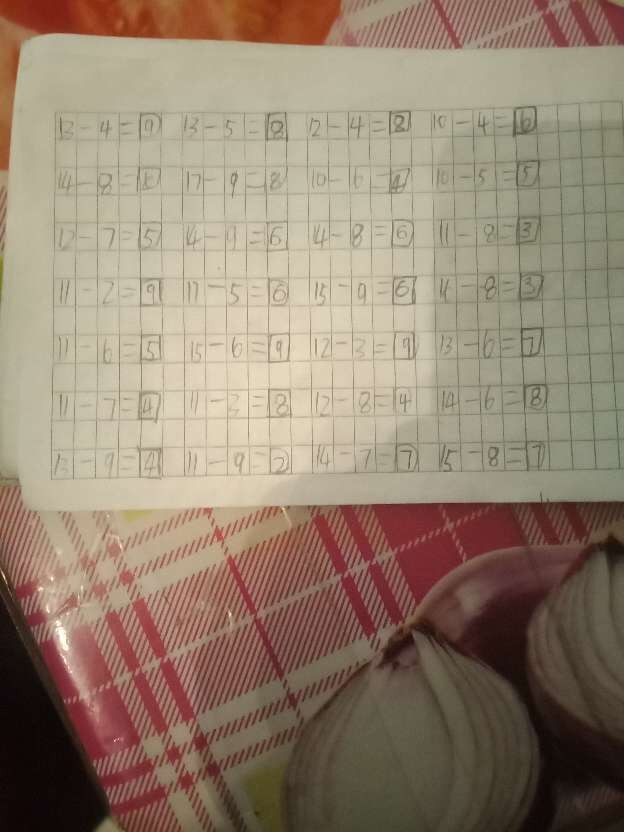 13-4=9 13-5=8 12-4=8 10-4=6
14-8=6 17-9=8 10-6=4 10-5=5
12-7=5 14-9=6 14-8=6 11-8=3
11-2=9 11-5=6 15-9=6 11-8=3
11-6=5 15-6=9 12-3=9 13-6=7
11-7=4 11-3=8 12-8=4 14-6=8
13-9=4 11-9=2 14-7=7 15-8=7